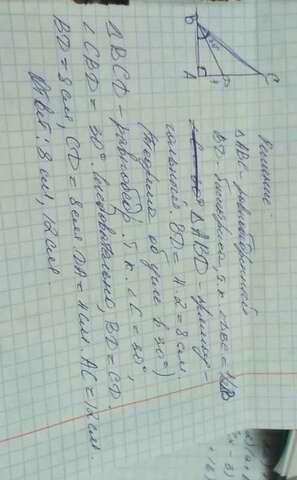 Решение
△ABC - равнобедренный
BD - биссектриса, т.к. ∠ABC =
△ABD - прямоуг-
гольный. BD = 4·2 = 8 см.
(теорема об угле в 30°)
△BCD - равнобедр., т.к. ∠C = 30°,
∠CBD = 30°. Следовательно, BD = CD.
BD = 8 см, CD = 8 см DA = 4 см. AC = 12 см.
Ответ: 8 см, 12 см.
B
A
D
C